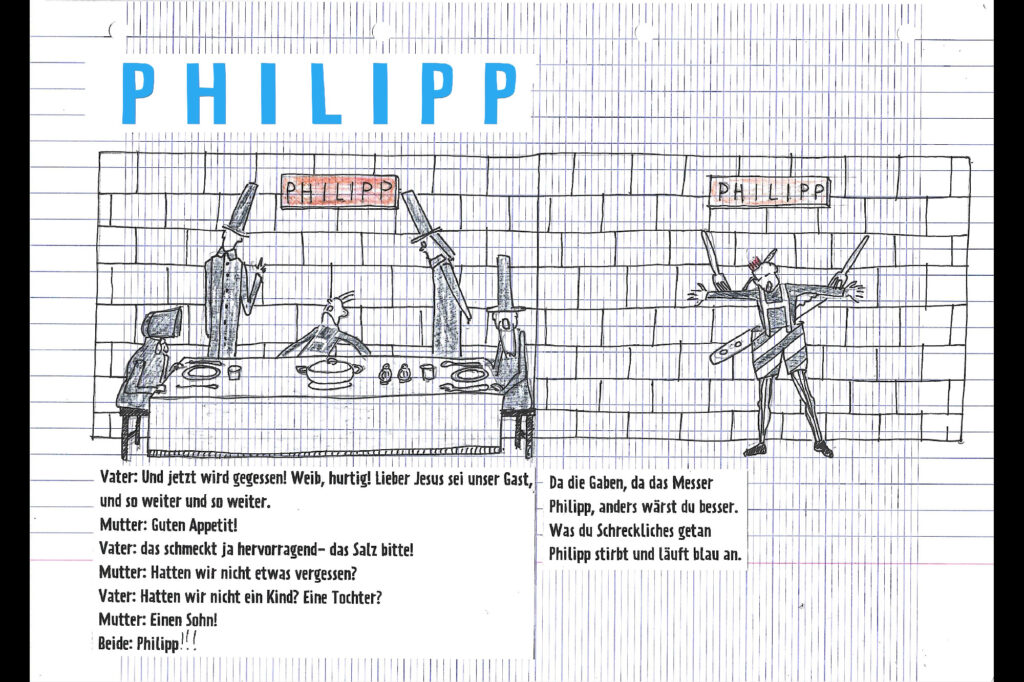 PHILIPP
PHILIPP
PHILIPP
Vater: Und jetzt wird gegessen! Weib, hurtig! Lieber Jesus sei unser Gast,
und so weiter und so weiter.
Mutter: Guten Appetit!
Vater: das schmeckt ja hervorragend- das Salz bitte!
Mutter: Hatten wir nicht etwas vergessen?
Vater: Hatten wir nicht ein Kind? Eine Tochter?
Mutter: Einen Sohn!
Beide: Philipp!!!
Da die Gaben, da das Messer
Philipp, anders wärst du besser.
Was du Schreckliches getan
Philipp stirbt und läuft blau an.